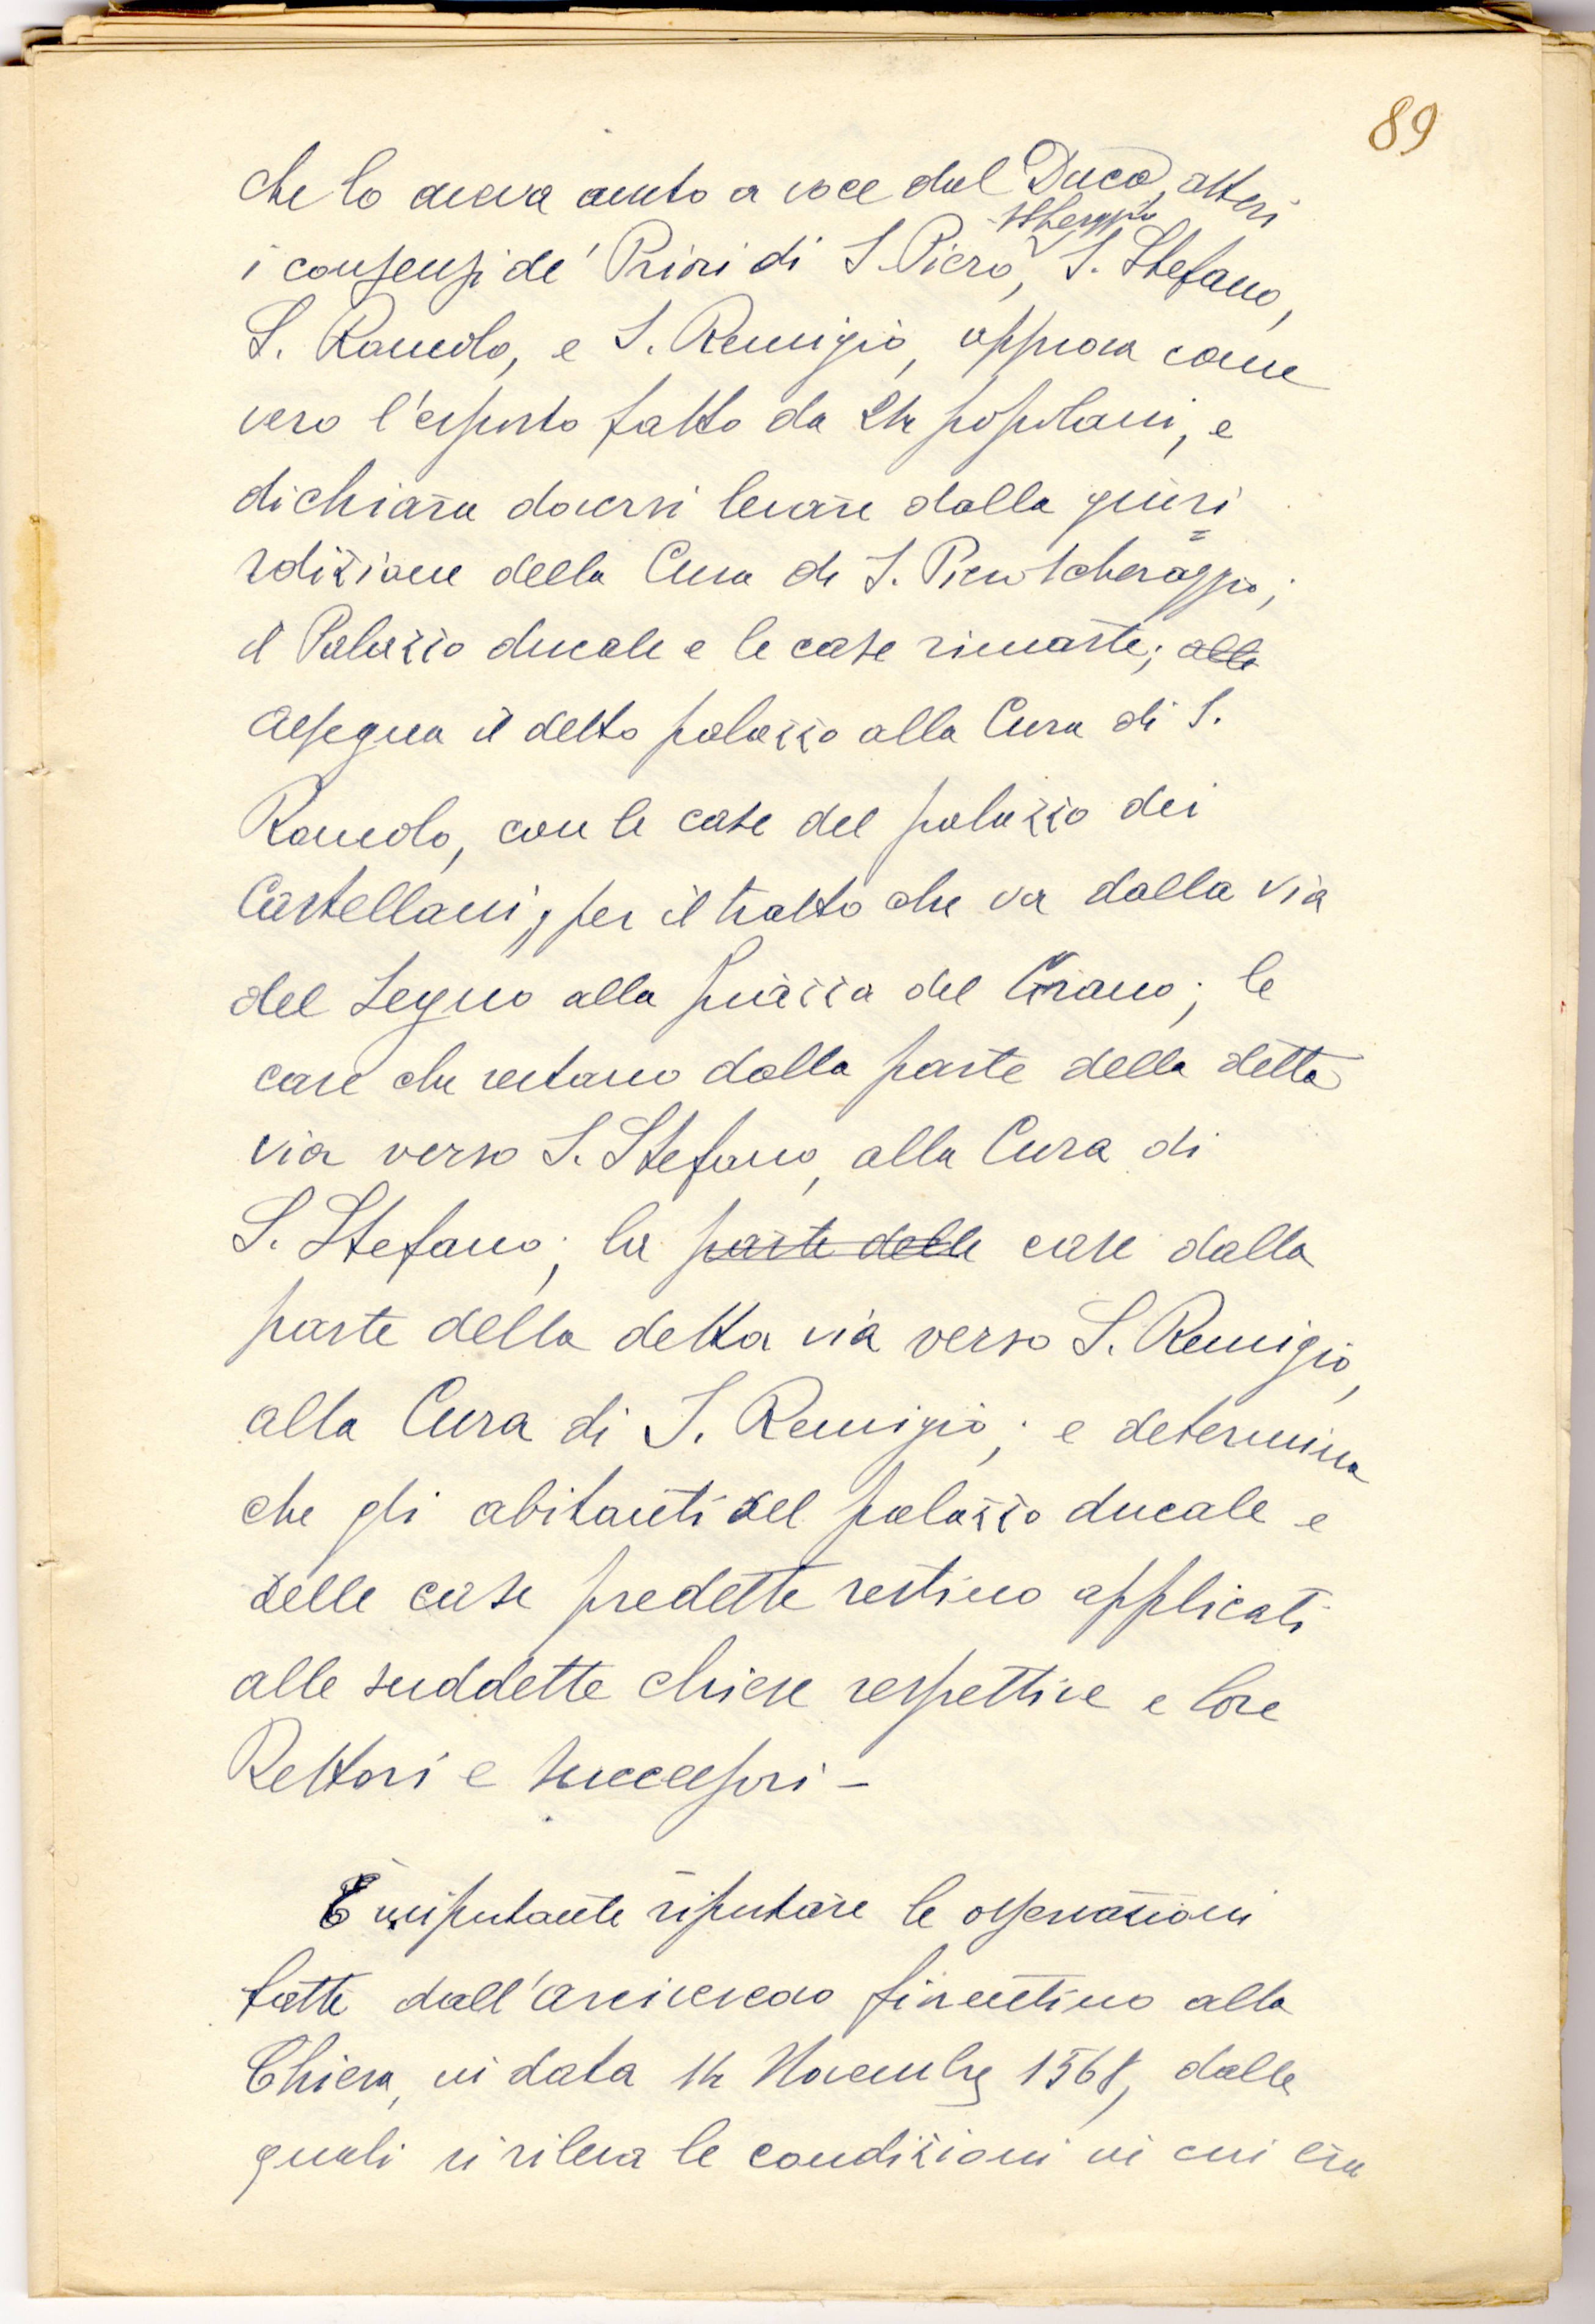 89
che lo aveva avuto a voce dal Duca, attesi
i consensi de' Priori di S. Piero Scheraggio, S. Stefano,
S. Romolo, e S. Remigio, approva come
vero l'esposto fatto da 24 popolani, e
dichiara doversi levare dalla giuri
sdizione della Cura di S. Piero Scheraggio;
il Palazzo ducale e le case rimaste; alla
assegna il detto palazzo alla Cura di S.
Romolo, con le case del palazzo dei
Castellani, per il tratto che va dalla via
del Legno alla piazza del Grano; le
case che restano dalla parte della detta
via verso S. Stefano, alla Cura di
S. Stefano; le parte delle case dalla
parte della detta via verso S. Remigio,
alla Cura di S. Remigio; e determina
che gli abitanti del palazzo ducale e
delle case predette restino applicati
alle suddette chiese respettive e loro
Rettori e successori –
È importante riportare le osservazioni
fatte dall'Arcivescovo fiorentino alla
Chiesa, in data 14 Novembre 1568, dalle
quali si rileva le condizioni in cui era